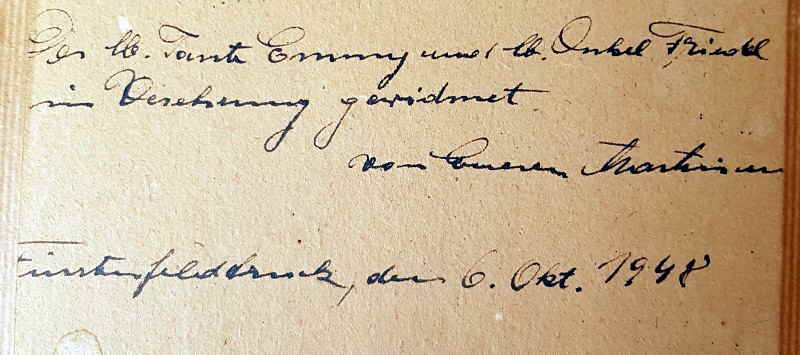 Der lb. Tante Emmy und lb. Onkel Friedl
in Verehrung gewidmet
von Eueren
Fürstenfeldbruck, den 6. Okt. 1948